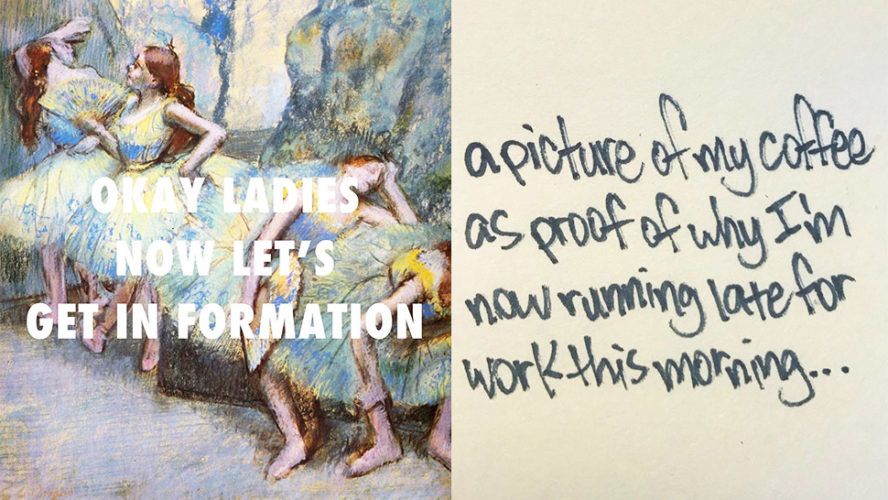 OKAY LADIES
NOW LET'S
GET IN FORMATION
a picture of my coffee
as proof of why I'm
now running late for
work this morning...